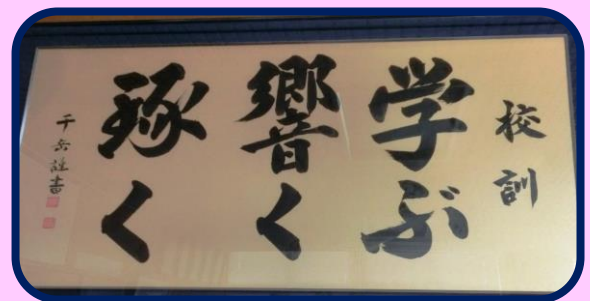 校訓
学ぶ
響く
琢く
千岳謹書